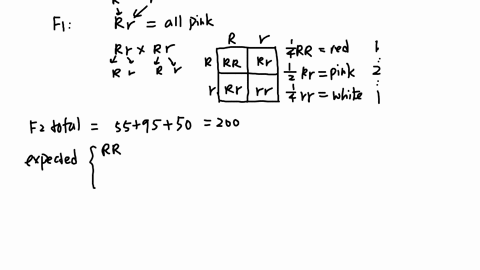 R r
F1: Rr = all pink
Rr x Rr
R r R r
R r
R RR Rr
r Rr rr
1/4 RR = red 1
:
1/2 Rr = pink 2
:
1/4 rr = white 1
F2 total = 55+95+50 = 200
expected { RR